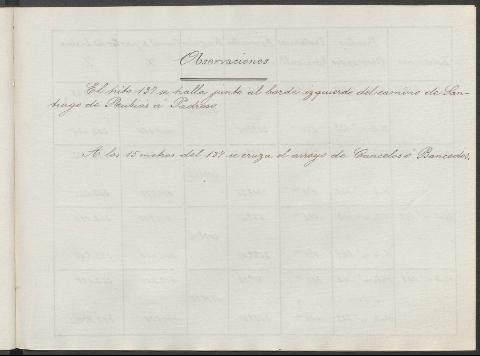 Observaciones
El hito 137 se halla junto al borde izquierdo del camino de San-
tiago de Rubiás á Padroso.
A los 15 metros del 137 se cruza el arroyo de Cancelos ó Bancedos.